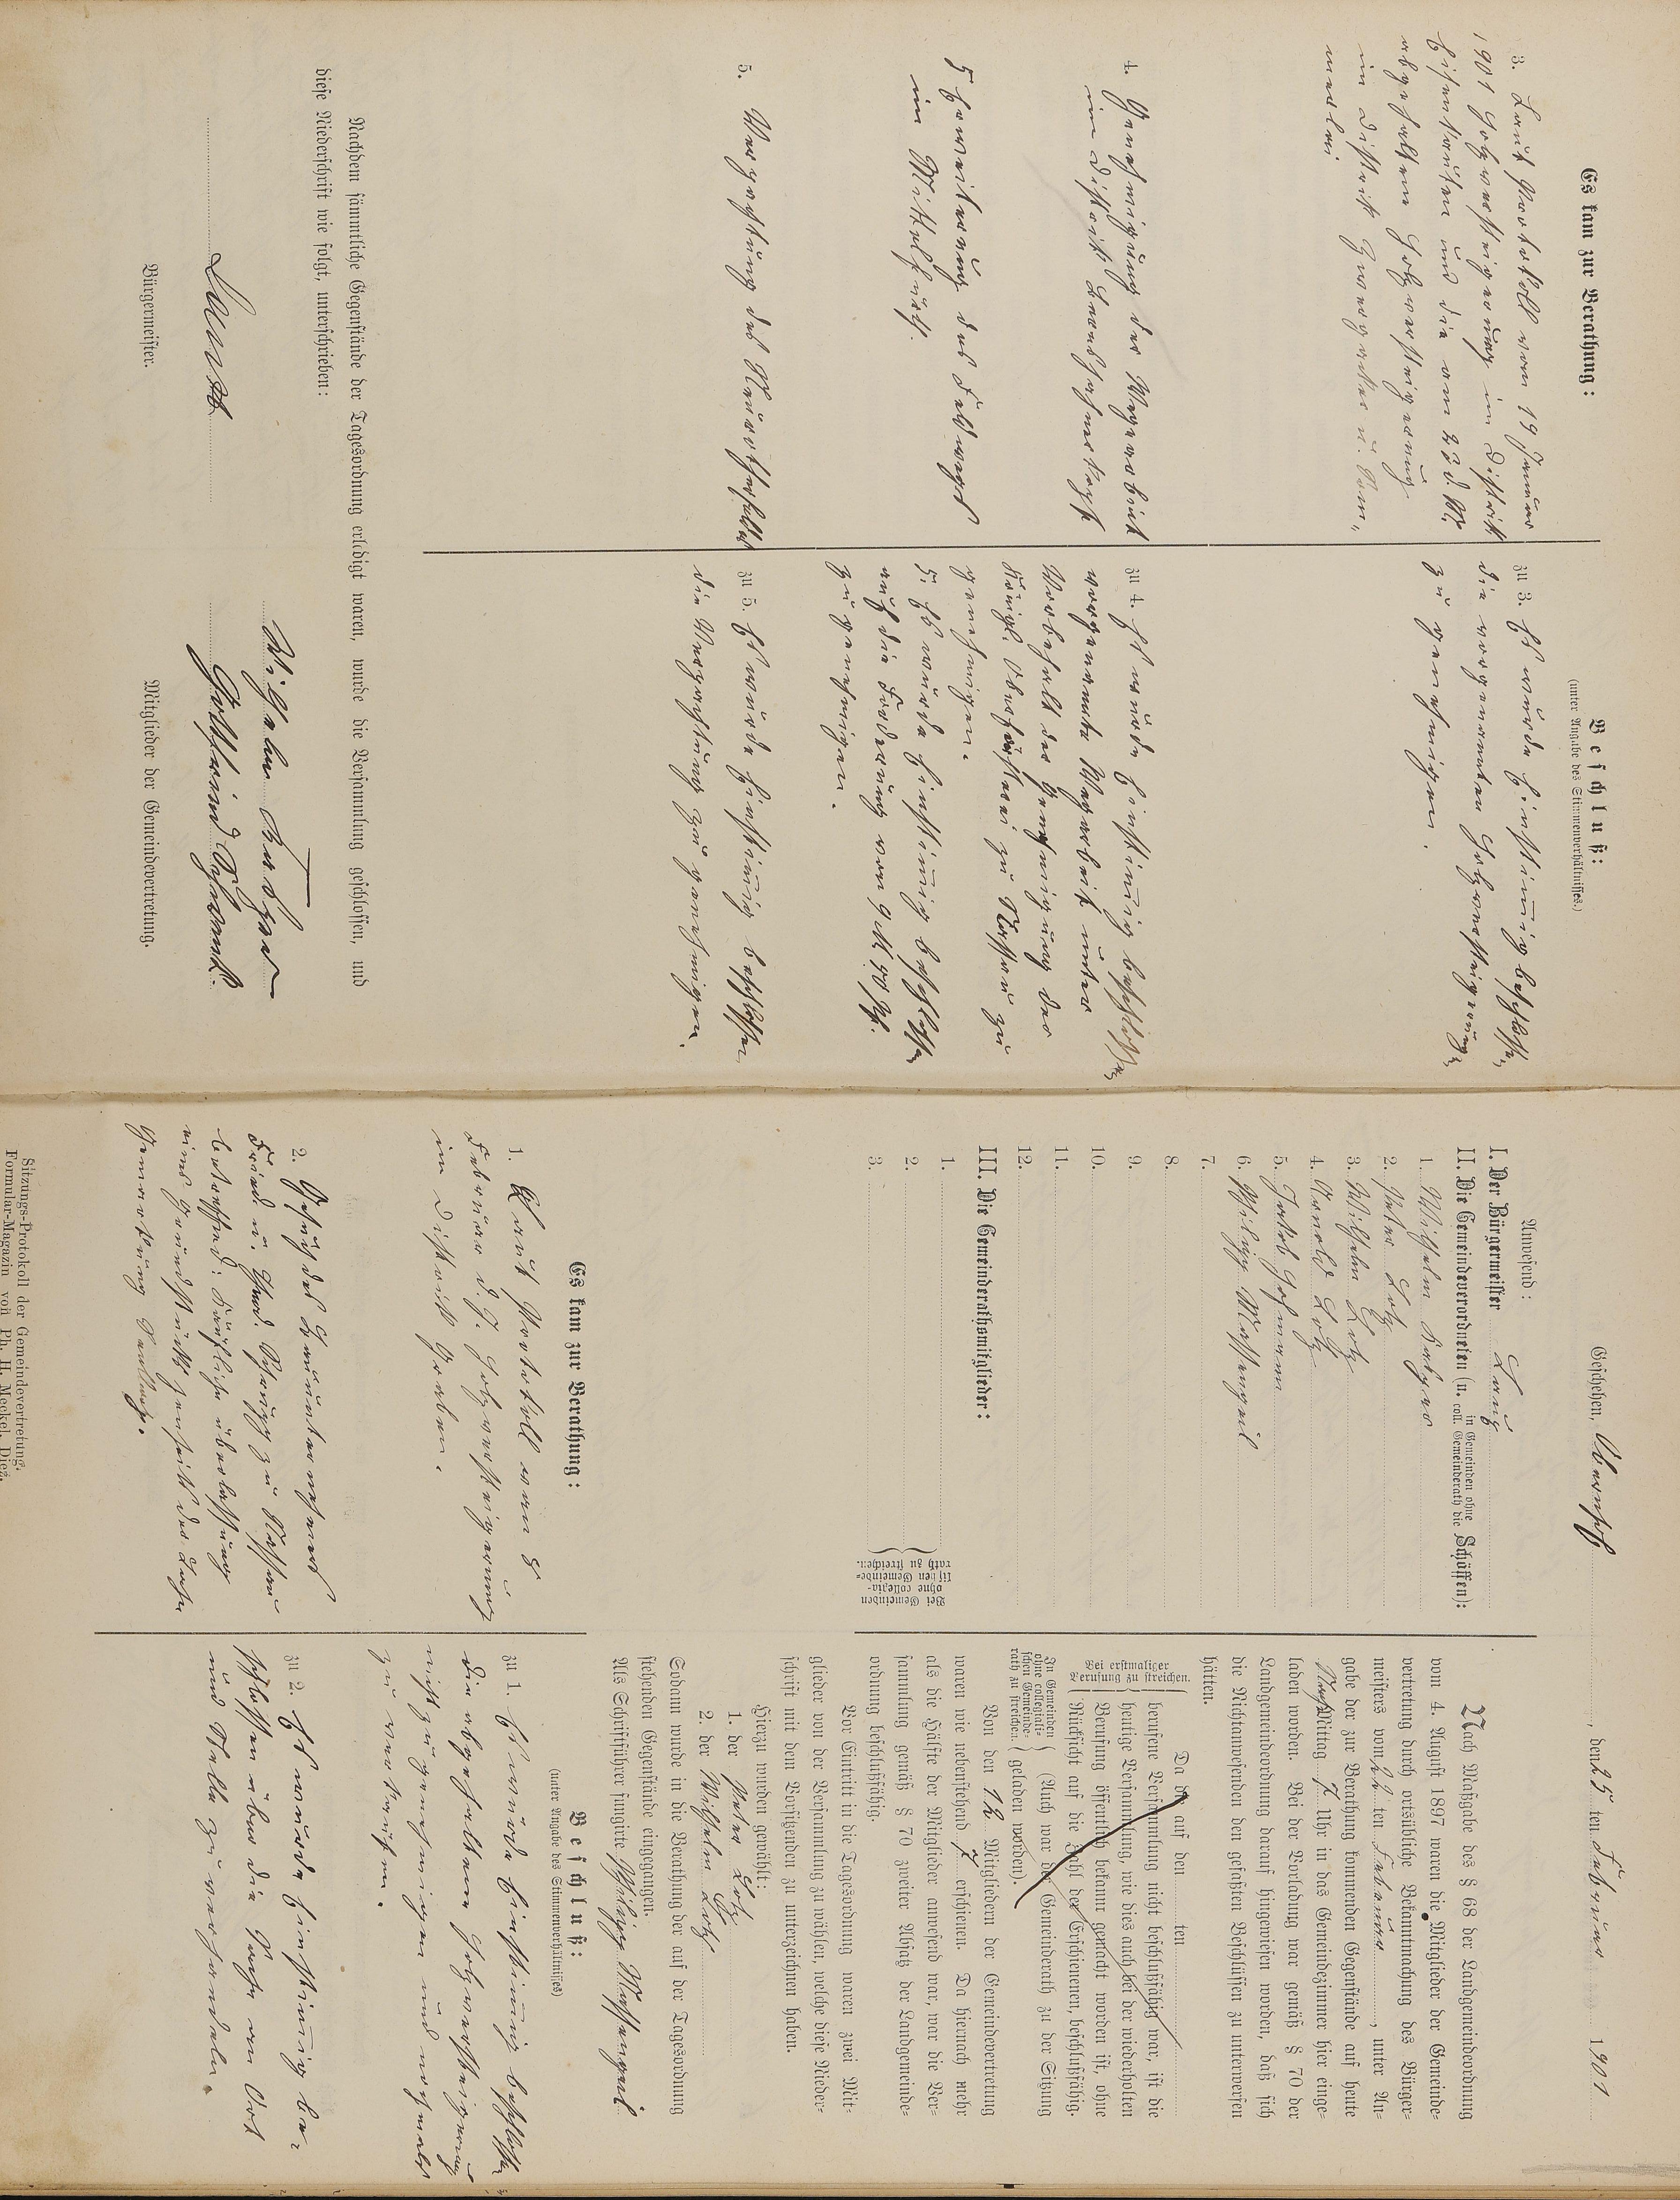 Es kam zur Berathung:
3. Laut Protokoll vom 19 Januar
1901 Holzversteigerung in Distrikt
und die am 22 d. M.
abgehaltene Holzversteigerung
in Distrikt
4. Genehmigung der Wegearbeit
in Distrikt
5 Erweiterung des Feldwegs
im
5. Verpachtung des
Beschluß:
(unter Angabe des Stimmenverhältnisses.)
zu 3. Es wurde Einstimig beschlossen
die vorgenanten Holzversteigerungen
zu genehmigen.
zu 4. Es wurde Einstimig beschlossen
vorgenannte Wegearbeit unter
Vorbehalt der Genehmigung der
Königl. Oberförsterei zu Nassau zu
genehmigen.
5. Es wurde Einstimig beschlossen
auch die Forderung von 9 M 90 Pf.
zu genehmigen.
zu 5. Es wurde Einstimig beschlossen
die Verpachtung zu genehmigen.
Nachdem sämmtliche Gegenstände der Tagesordnung erledigt waren, wurde die Versammlung geschlossen, und
diese Niederschrift wie folgt, unterschrieben:
Wilhelm
Bürgermeister.
Mitglieder der Gemeindevertretung.
Geschehen, Obernhof, den 25 ten Februar 1901
Anwesend:
I. Der Bürgermeister
II. Die Gemeindeverordneten (u. in Gemeinden ohne coll. Gemeinderath die Schöffen):
1. Wilhelm
2. Peter Lotz
3. Wilhelm Lotz
4. Arnold Lotz
5. Jakob Hofmann
6. Philipp Massengeil
7.
8.
9.
10.
11.
12.
III. Die Gemeinderathsmitglieder:
1.
2.
3.
Bei Gemeinden
ohne collegia-
lischen Gemeinde-
rath zu streichen.
Nach Maßgabe des § 68 der Landgemeindeordnung
vom 4. August 1897 waren die Mitglieder der Gemeinde-
vertretung durch ortsübliche Bekanntmachung des Bürger-
meisters vom 22 ten Februar, unter An-
gabe der zur Berathung kommenden Gegenstände auf heute
Nachmittag 7 Uhr in das Gemeindezimmer hier einge-
laden worden. Bei der Vorladung war gemäß § 70 der
Landgemeindeordnung darauf hingewiesen worden, daß sich
die Nichtanwesenden den gefaßten Beschlüssen zu unterwerfen
hätten.
Bei erstmaliger
Berufung zu streichen.
Da die auf den ten
berufene Versammlung nicht beschlußfähig war, ist die
heutige Versammlung, wie dies auch bei der wiederholten
Berufung öffentlich bekannt gemacht worden ist, ohne
Rücksicht auf die Zahl der Erschienenen, beschlußfähig.
In Gemeinden
ohne collegiali-
schen Gemeinde-
rath zu streichen.
(Auch war der Gemeinderath zu der Sitzung
geladen worden).
Von den 12 Mitgliedern der Gemeindevertretung
waren wie nebenstehend 7 erschienen. Da hiernach mehr
als die Hälfte der Mitglieder anwesend war, war die Ver-
sammlung gemäß § 70 zweiter Absatz der Landgemeinde-
ordnung beschlußfähig.
Vor Eintritt in die Tagesordnung waren zwei Mit-
glieder von der Versammlung zu wählen, welche diese Nieder-
schrift mit dem Vorsitzenden zu unterzeichnen haben.
Hierzu wurden gewählt:
1. der Peter Lotz
2. der Wilhelm Lotz
Sodann wurde in die Berathung der auf der Tagesordnung
stehenden Gegenstände eingegangen.
Als Schriftführer fungirte Philipp Massengeil
Es kam zur Berathung:
1. Laut Protokoll vom 8
Februar d. J. Holzversteigerung
in Distrikt Graben.
2. Gesuch des Bauunternehmers
Fried. u. zu Nassau
betreffend: Käufliche überlassung
eines Grundstücks jenseits der Lahn
Gemarkung
Beschluß:
(unter Angabe des Stimmenverhältnisses)
zu 1. Es wurde Einstimig beschlossen
die abgehaltene Holzversteigerung
nicht zu genehmigen und nochmals
zu verkaufen.
zu 2. Es wurde Einstimig be-
schlossen über die Sache an Ort
und Stelle zu verhandeln.
Sitzungs-Protokoll der Gemeindevertretung.
Formular-Magazin von Ph. H. Meckel, Diez.